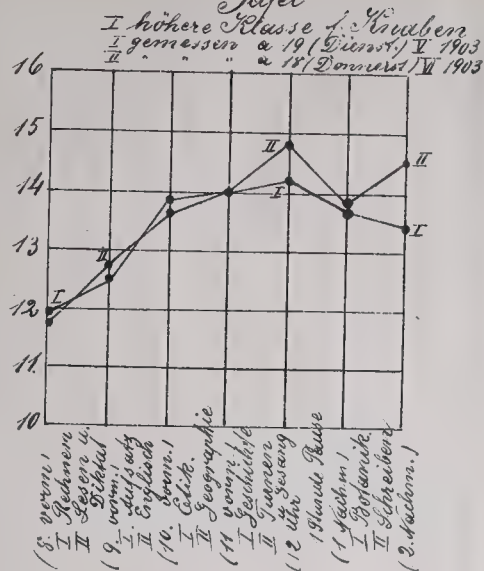 Tafel
I höhere Klasse f. Knaben
I gemessen a 19 (Dienst.) V 1903
II " " " a 18 (Donnerst.) VI 1903
16
15
14
13
12
11
10
I
II
II
I
II
I
(8. vorm!
I Rechnen
II Lesen u.
Diktat
(9. vorm!
I. Aufsatz
II Englisch
(10. vorm!
I. Etik.
II Geographie
(11 vorm!
I Geschichte
II Turnen
u. Gesang
(12 Uhr
1 Stunde Pause
(1 Nachm!
I Botanik
II Schreiben
(2. Nachm.)